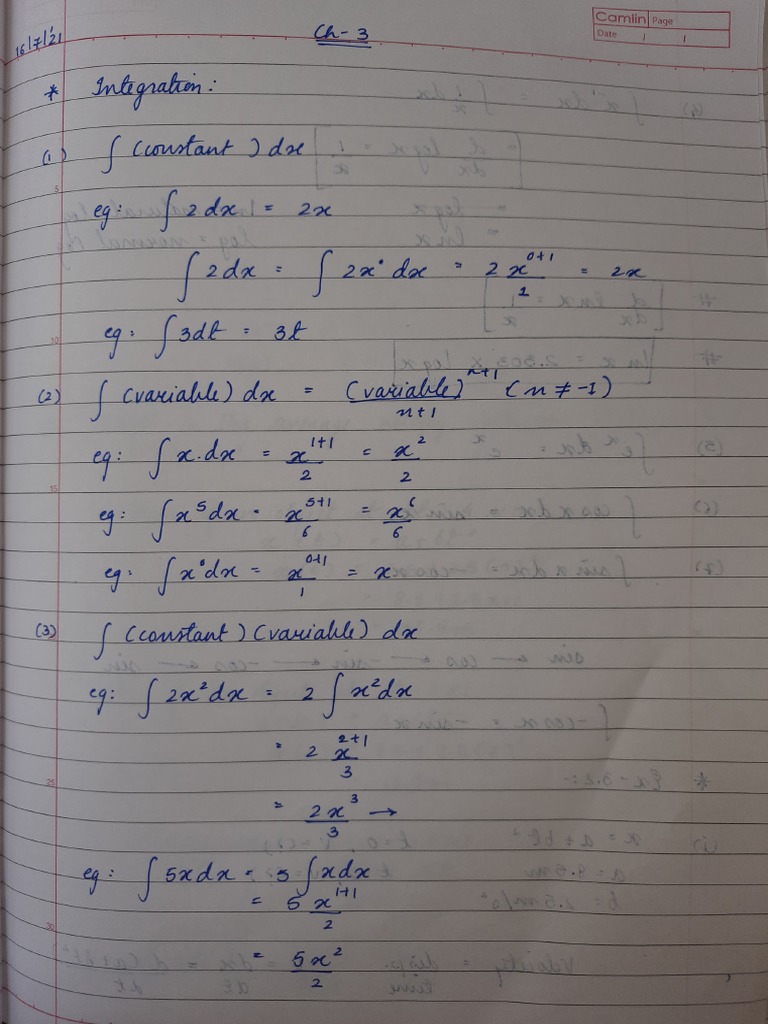 16/7/21
Ch-3
Camlin Page
Date / /
* Integration:
(1) ∫ (constant) dx
eg: ∫ 2 dx = 2x
∫ 2dx = ∫ 2x⁰ dx = 2 x⁰⁺¹/1 = 2x
eg: ∫ 3dt = 3t
(2) ∫ (variable) dx = (variable)ⁿ⁺¹/n+1 (n ≠ -1)
eg: ∫ x.dx = x¹⁺¹/2 = x²/2
eg: ∫ x⁵dx = x⁵⁺¹/6 = x⁶/6
eg: ∫ x⁰dx = x⁰⁺¹/1 = x
(3) ∫ (constant) (variable) dx
eg: ∫ 2x²dx = 2 ∫ x²dx
= 2 x²⁺¹/3
= 2x³/3 →
eg: ∫ 5x dx = 5 ∫ xdx
= 5 x¹⁺¹/2
= 5x²/2